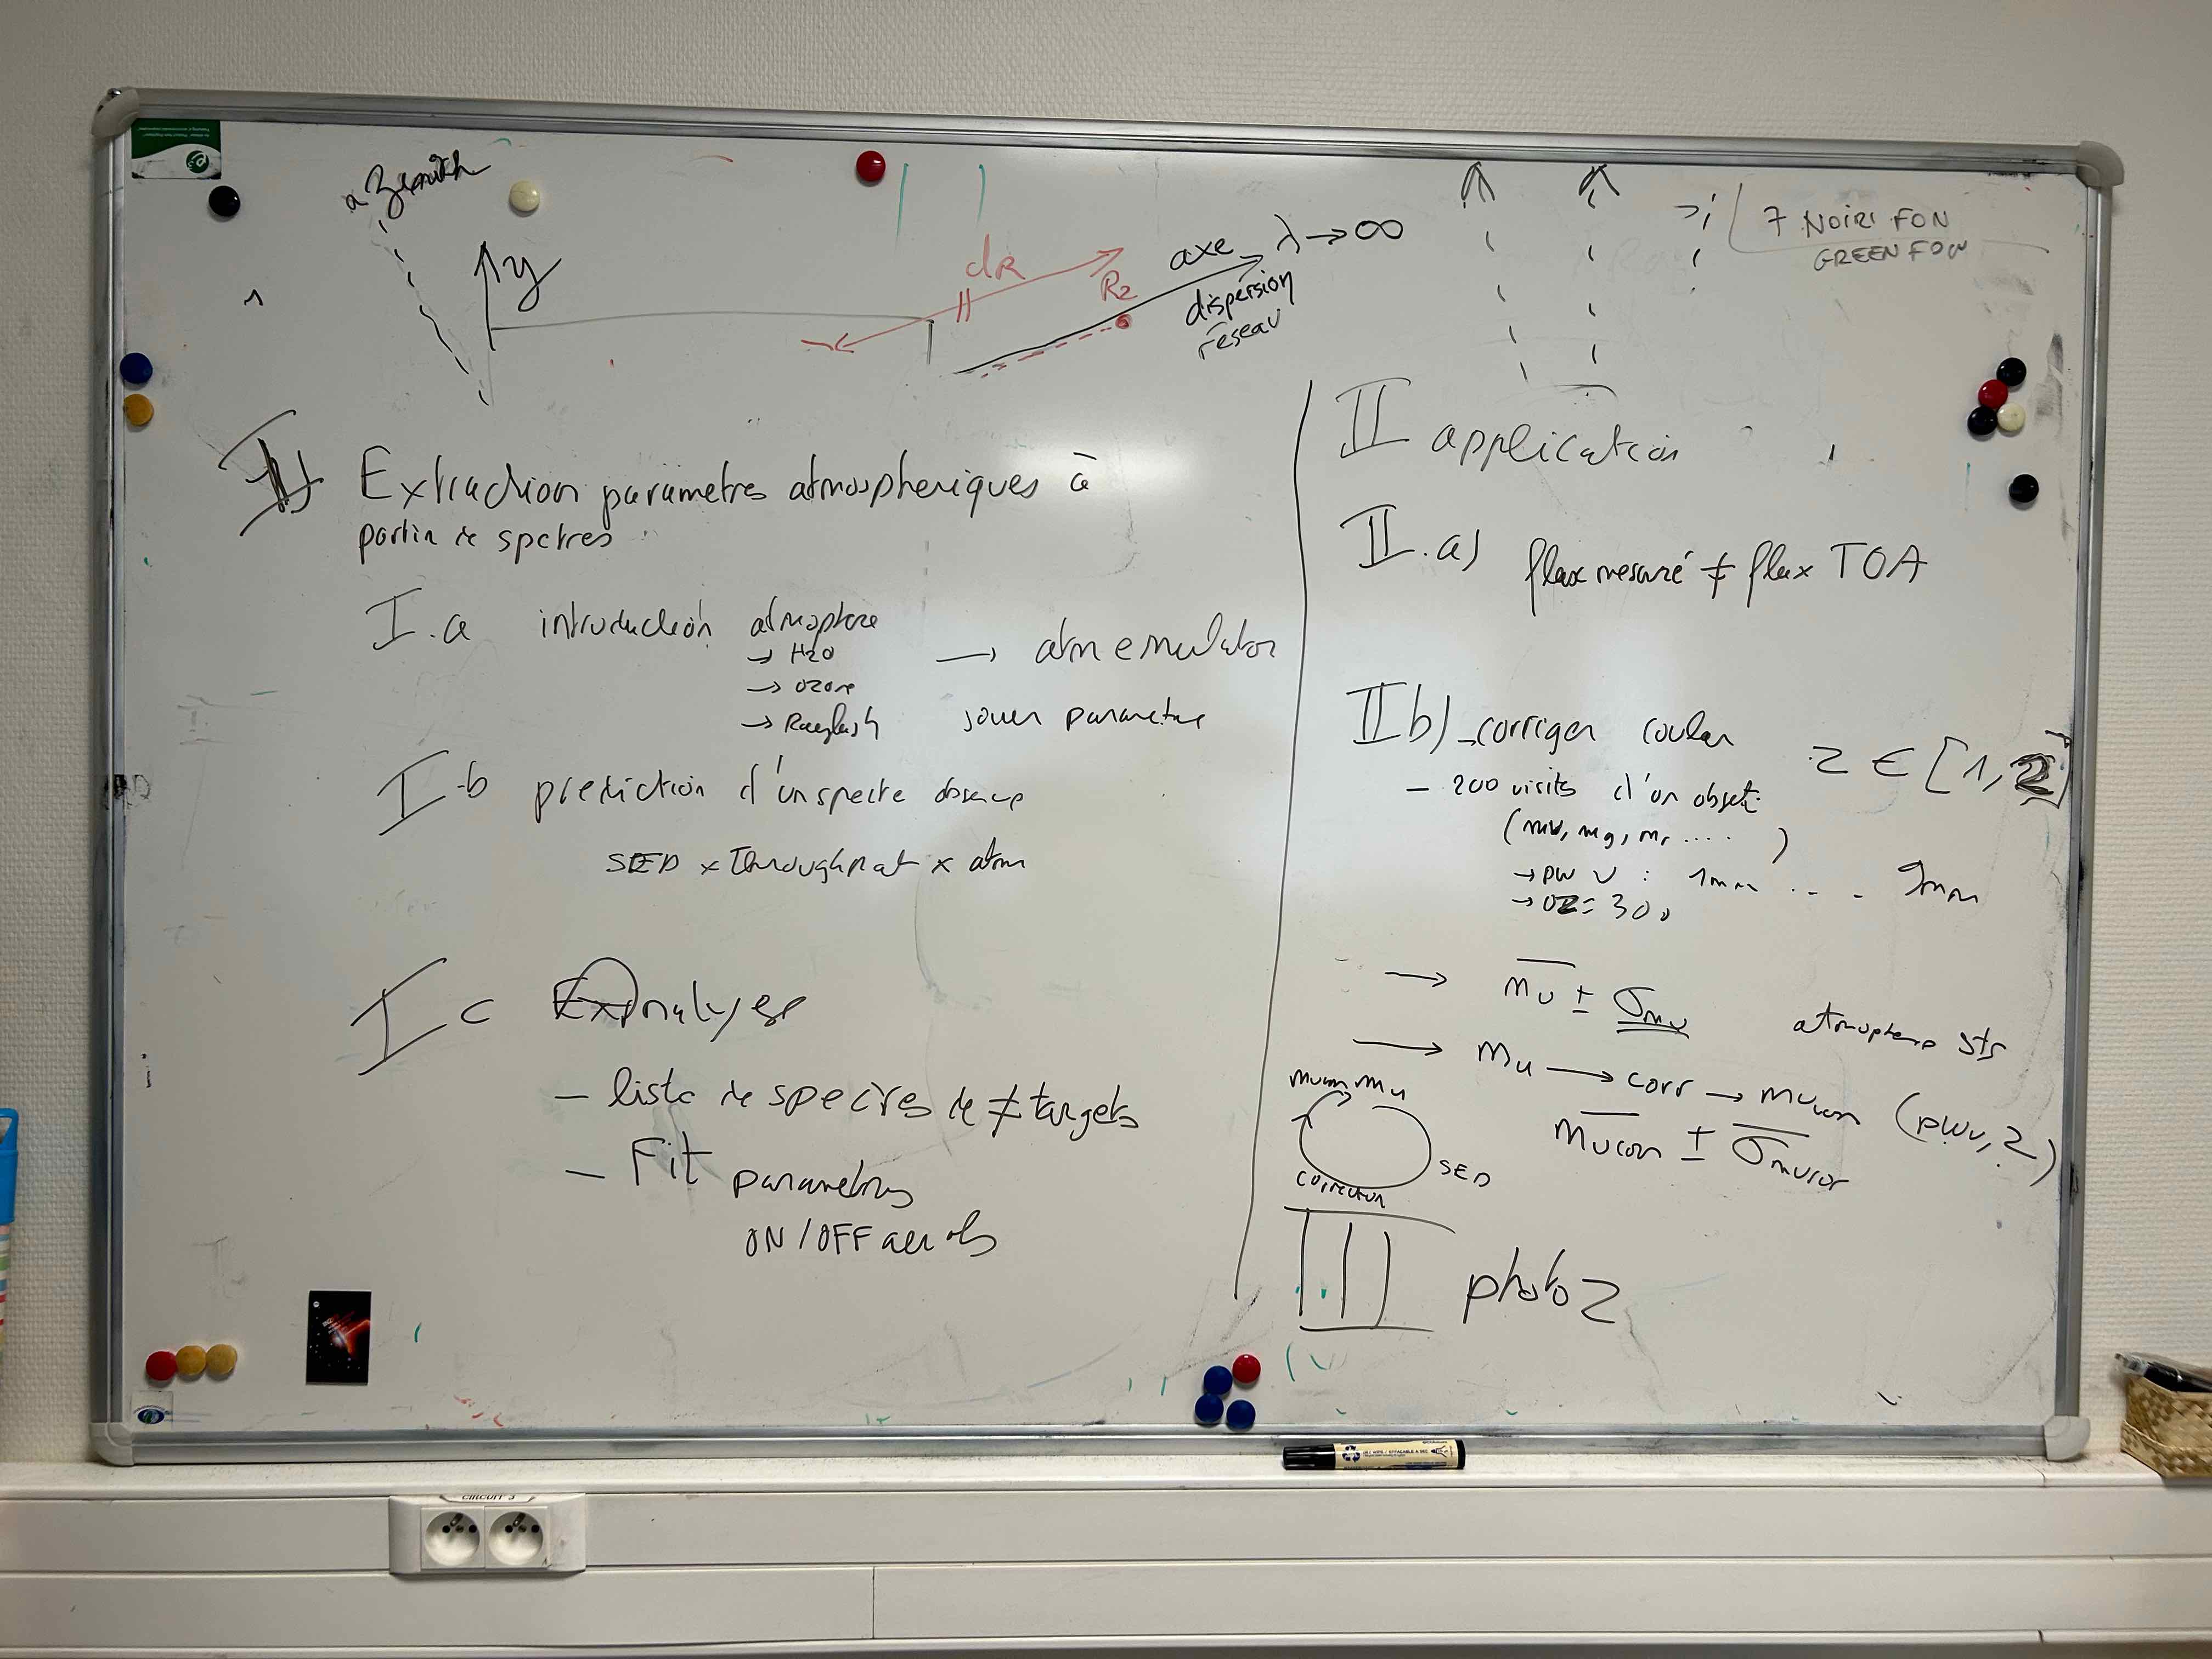 a Zenith
y
dR
R2
axe λ→∞
dispersion
réseau
7 NOIRI FON
GREEN FON
I) Extraction parametres atmospheriques à
partir de spectres
I.a introduction atmosphere → atm emulator
→ H2O
→ ozone
→ Rayleigh jouer parametre
I-b prediction d'un spectre observe
SED x Throughput x atm
I c Analyse
- liste de spectres de ≠ targets
- Fit parametres
ON/OFF aerols
II application
II.a) flux mesuré ≠ flux TOA
II b) corriger couleur z ∈ [1, 2]
- 200 visits d'un objet
(mu, mg, mr .... )
→ PWV : 1mm ... 9mm
→ OZ = 300
→ mu ± σmu atmosphere std
→ mu → corr → mucorr (pwv, z)
mucorr mu
mucorr ± σmucorr
SED
correction
III photo z
CIRCUIT 3